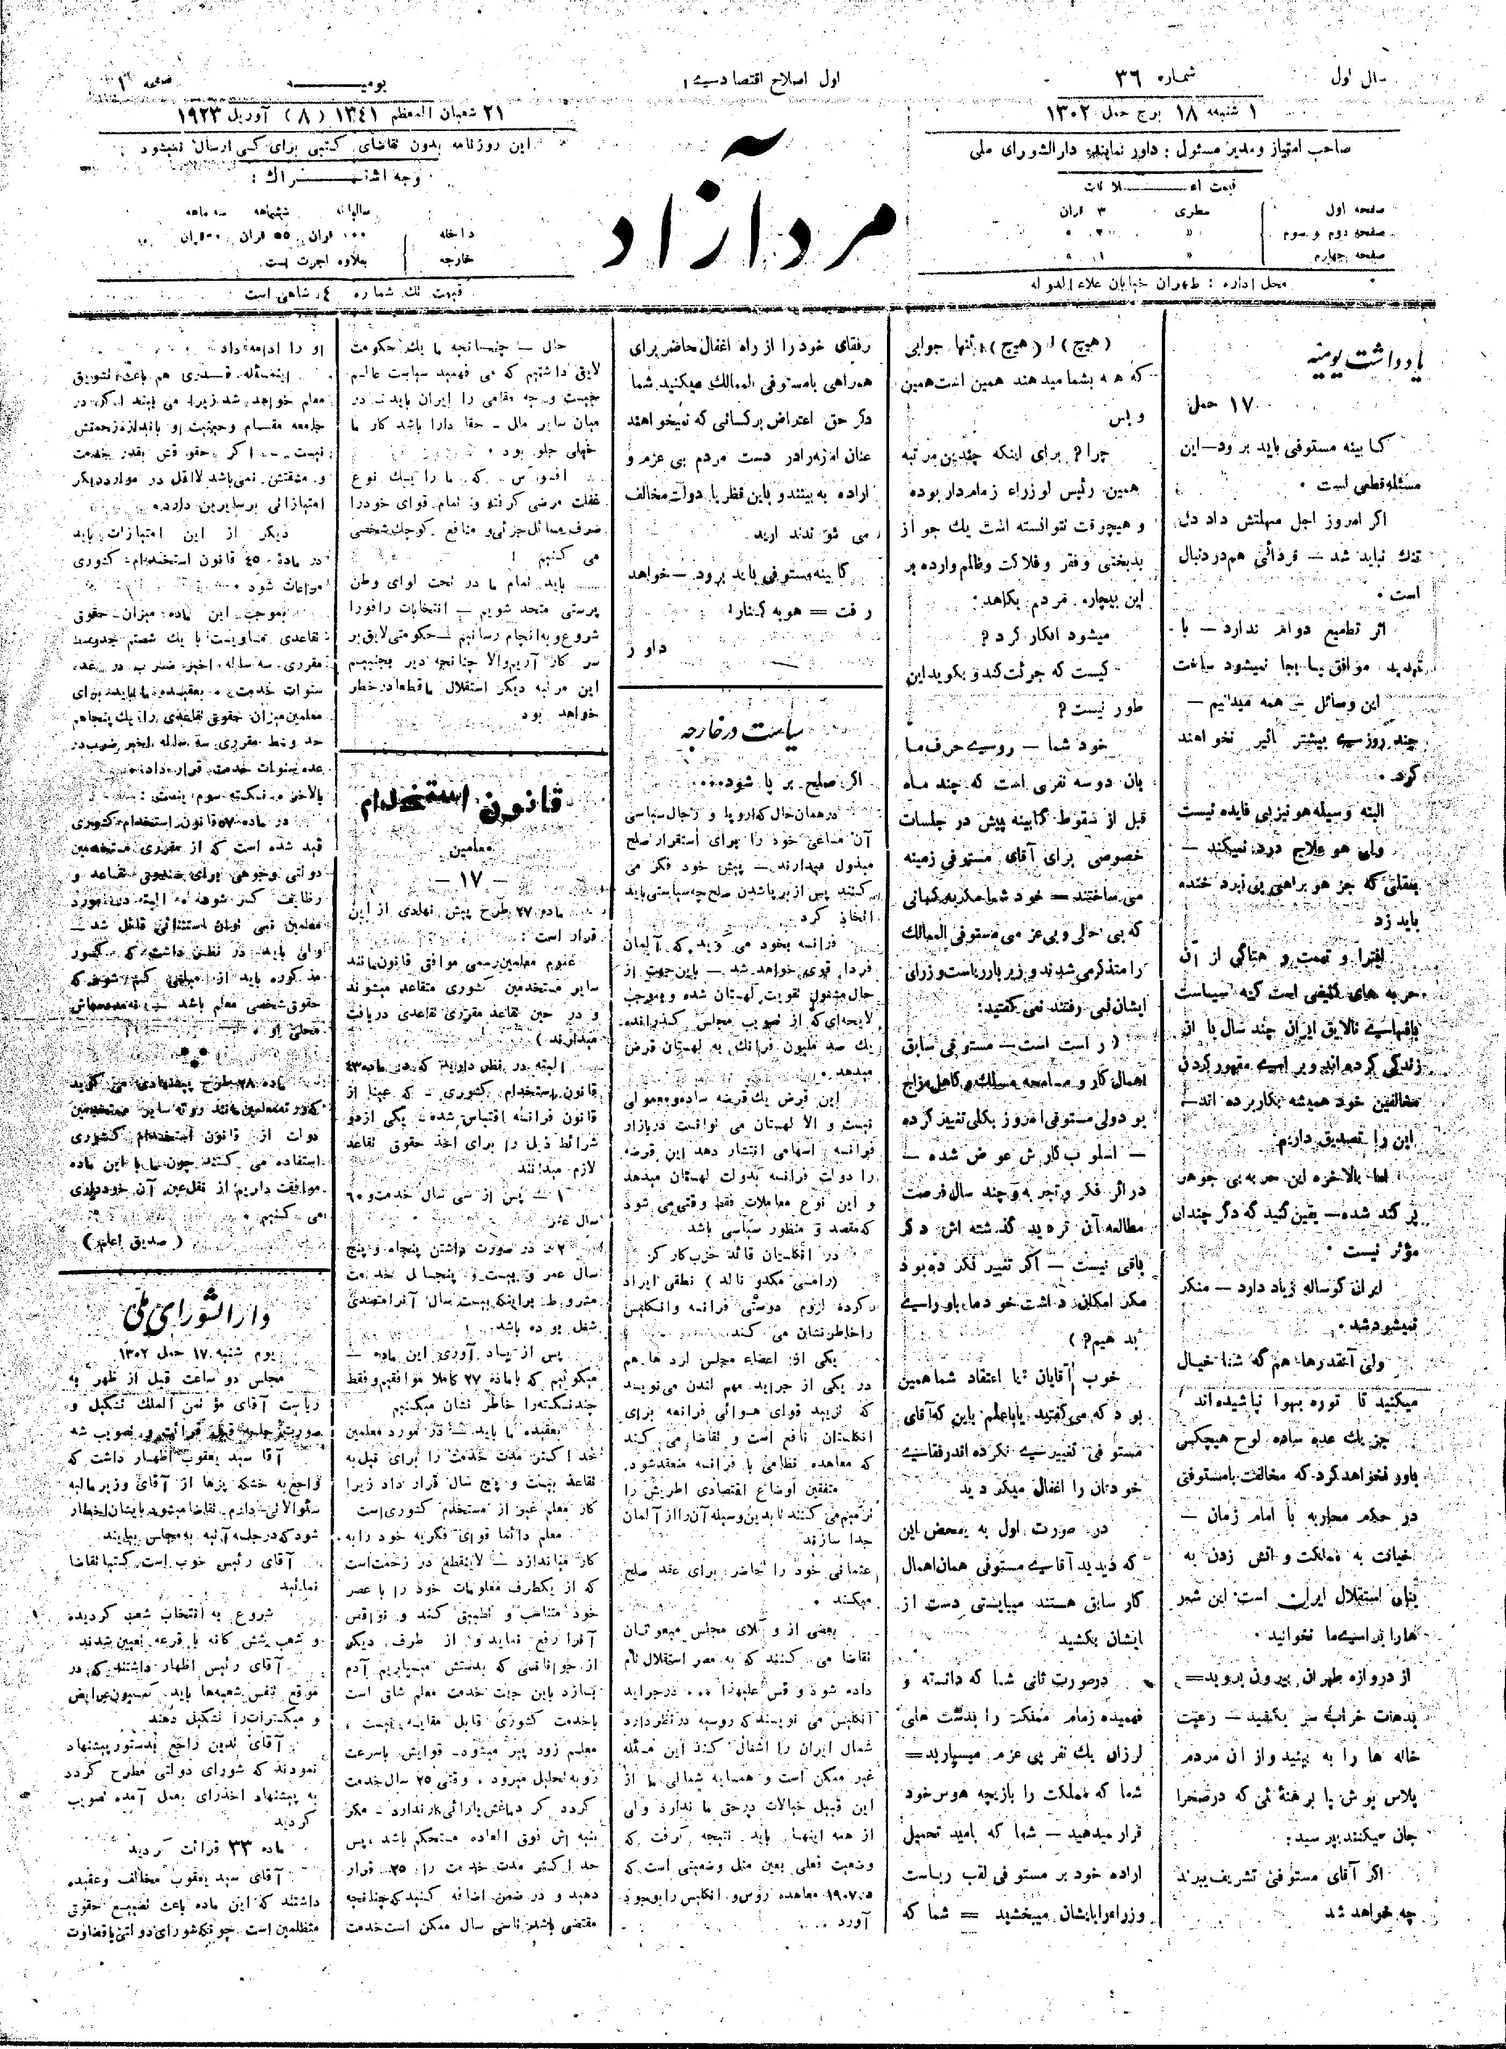 سال اول
شماره ۳۶
اول اصلاح اقتصادسی
یومیه
صفحه ۱
۱ شنبه ۱۸ برج حمل ۱۳۰۲
۲۱ شعبان المعظم ۱۳۴۱ (۸) آوریل ۱۹۲۳
صاحب امتیاز و مدیر مسئول : داور نماینده دارالشورای ملی
قیمت اعلانات
صفحه اول سطری ۳ قران
صفحه دوم و سوم » ۲ »
صفحه چهارم » ۱ »
محل اداره : طهران خیابان علاءالدوله
مرد آزاد
این روزنامه بدون تقاضای کتبی برای کسی ارسال نمیشود :
وجه اشتراک :
سالیانه ششماهه سه ماهه
داخله ۱۰۰ قران ۵۵ قران ۳۰ قران
خارجه بعلاوه اجرت پست
قیمت تک شماره ۴ شاهی است
یادداشت یومیه
۱۷ حمل
کابینه مستوفی باید برود — این
مسئله قطعی است .
اگر امروز اجل مهلتش داد دل
تنک نباید شد — فردائی هم در دنبال
است .
اثر تطمیع دوام ندارد — با
تهدید موافق بیا بجا نمیشود ساخت
این وسائل — همه میدانیم —
چند روزی بیشتر تأثیر نخواهند
کرد .
البته وسیله هو نیز بی فایده نیست
ولی هو علاج درد نمیکند —
بعقلی که جز هو براهی پی نبرد خنده
باید زد
افترا و تهمت و هتاکی از آن
حربه های کثیفی است که سیاست
بافهای نالایق ایران چند سال با آن
زندگی کرده اند و برای مقهور کردن
مخالفین خود همیشه بکار برده اند —
این را تصدیق داریم
اما بالاخره این حربه بی جوهر
پر کند شده — یقین کنید که دگر چندان
مؤثر نیست .
ایران گوساله زیاد دارد — منکر
نمیشود شد .
ولی آنقدرها هم که شما خیال
میکنید قا توره بهوا نپاشیده اند
جز یک عده ساده لوح هیچکس
باور نخواهد کرد که مخالفت با مستوفی
در حکم محاربه با امام زمان —
خیانت به مملکت و آتش زدن به
بنیان استقلال ایران است این شعر
ها را برای ما نخوانید .
از دروازه طهران بیرون بروید —
بدهات خراب سر بکشید — رعیت
خاله ها را به بینید و از آن مردم
پلاس پوش پا برهنه ئی که در صحرا
جان میکنند بپرسید :
اگر آقای مستوفی تشریف ببرند
چه خواهد شد
(هیچ) ! (هیچ) تنها جوابی
که همه بشما میدهند همین است همین
و بس
چرا ؟ برای اینکه چندین مرتبه
همین رئیس الوزراء زمامدار بوده
و هیچوقت نتوانسته است یک جو از
بدبختی و فقر و فلاکت و ظلم وارده بر
این بیچاره مردم بکاهد .
میشود انکار کرد ؟
کیست که جرئت کند و بگوید این
طور نیست ؟
خود شما — روی حرف ما
بان دو سه نفری است که چند ماه
قبل از سقوط کابینه پیش در جلسات
خصوصی برای آقای مستوفی زمینه
می ساختند — خود شما مگر به کسانی
که بی حالی و بی عزمی مستوفی الممالک
را متذکر می شدند و زیر بار ریاست وزرای
ایشان نمی رفتند نمی گفتید :
(راست است — مستوفی سابق
اهمال کار و مسامحه مسلک و کاهل مزاج
بود ولی مستوفی امروز بکلی تغییر کرده
— اسلوب کارش عوض شده —
در اثر فکر و تجربه و چند سال فرصت
مطالعه آن تردید گذشته اش دگر
باقی نیست — اگر تغییر نکرده بود
مگر امکان داشت خود ما باو رای
بدهیم ؟)
خوب آقایان یا اعتقاد شما همین
بود که می گفتید یا با علم باین که آقای
مستوفی تغییری نکرده اند رفقای
خودتان را اغفال میکردید
در صورت اول به محض این
که دیدید آقای مستوفی همان اهمال
کار سابق هستند میبایستی دست از
ایشان بکشید
در صورت ثانی شما که دانسته و
فهمیده زمام مملکت را بدست های
لرزان یک نفر بی عزم میسپارید —
شما که مملکت را بازیچه هوس خود
قرار میدهید — شما که بامید تحمیل
اراده خود بر مستوفی لقب ریاست
وزراء را بایشان میبخشید — شما که
رفقای خود را از راه اغفال حاضر برای
همراهی با مستوفی الممالک میکنید شما
دگر حق اعتراض بر کسانی که نمیخواهند
عنان امور را در دست مردم بی عزم و
اراده به بینند و باین نظر با دولت مخالف
می شوند ندارید
کابینه مستوفی باید برود — خواهد
رفت — هو به کنار !
داور
سیاست در خارجه
اگر صلح بر پا شود ....
در همان حال که اروپا و رجال سیاسی
آن مساعی خود را برای استقرار صلح
مبذول میدارند — پیش خود فکر می
کنند پس از بر پا شدن صلح چه سیاستی باید
اتخاذ کرد .
فرانسه بخود می گوید که آلمان
فردا قوی خواهد شد — باین جهت از
حال مشغول تقویت لهستان شده و بموجب
لایحه ای که از تصویب مجلس گذرانده
یک صد ملیون فرانک به لهستان قرض
میدهد .
این قرض یک قرضه ساده و معمولی
نیست و الا لهستان می توانست در بازار
فرانسه اسهامی انتشار دهد این قرضه
را دولت فرانسه بدولت لهستان میدهد
و این نوع معاملات فقط وقتی می شود
که مقصد و منظور سیاسی باشد
در انگلستان قائد حزب کارگر
(رامسی مکدونالد) نطقی ایراد
کرده لزوم دوستی فرانسه و انگلیس
را خاطر نشان می کند
یکی از اعضاء مجلس لردها هم
در یکی از جراید مهم لندن می نویسد
که تزیید قوای هوائی فرانسه برای
انگلستان نافع است و تقاضا می کند
که معاهده نظامی با فرانسه منعقد شود .
متفقین اوضاع اقتصادی اطریش را
ترمیم می کنند تا بدین وسیله آن را از آلمان
جدا سازند
عثمانی خود را حاضر برای عقد صلح
میکند .
بعضی از وکلای مجلس مبعوثان
تقاضا می کنند که به مصر استقلال تام
داده شود و قس علیهذا ... در جراید
انگلیس می نویسند که روسیه در نظر دارد
شمال ایران را اشغال کند این مسئله
غیر ممکن است و همسایه شمالی ما از
این قبیل خیالات در حق ما ندارد ولی
از همه اینها باید نتیجه گرفت که
وضعیت فعلی بعین مثل وضعیتی است که
در ۱۹۰۷ معاهده روس و انگلیس را بوجود
آورد ...
حال — چنانچه ما یک حکومت
لایق داشتیم که می فهمید سیاست عالم
چیست و چه مقامی را ایران باید در
میان سایر ملل حقا دارا باشد کار ما
خیلی جلو بود .
افسوس که ما را یک نوع
غفلت مرضی گرفته و تمام قوای خود را
صرف مسائل جزئی و منافع کوچک شخصی
می کنیم !
باید تمام ما در تحت لوای وطن
پرستی متحد شویم — انتخابات را فورا
شروع و به انجام رسانیم — حکومتی لایق بر
سر کار آریم والا چنانچه دیر بجنبیم
این مرتبه دیگر استقلال ما قطعا در خطر
خواهد بود
قانون استخدام
معلمین
— ۱۷ —
ماده ۲۷ طرح پیش نهادی از این
قرار است :
عموم معلمین رسمی موافق قانون مانند
سایر مستخدمین کشوری متقاعد میشوند
و در حین تقاعد مقرری تقاعدی دریافت
میدارند )
البته در نظر دارید که در ماده ۴۳
قانون استخدام کشوری — که عینا از
قانون فرانسه اقتباس شده — یکی از دو
شرائط ذیل را برای اخذ حقوق تقاعد
لازم میدانند
۱ — پس از سی سال خدمت و ۶۰
سال عمر .
۲ — در صورت داشتن پنجاه و پنج
سال عمر و بیست و پنجسال خدمت
مشروط براینکه بیست سال آنرا متصدی
شغل بوده باشد .
پس از یاد آوری این ماده —
میگوئیم که با ماده ۲۷ کاملا موافقیم و فقط
چند نکته را خاطر نشان میکنیم
بعقیده ما باید — در مورد معلمین
حد اکثر مدت خدمت را برای قبل به
تقاعد بیست و پنج سال قرار داد زیرا
کار معلم غیر از مستخدم کشوری است
معلم دائما قوای فکریه خود را به
کار میاندازد — لاینقطع در زحمت است
که از یکطرف معلومات خود را با عصر
خود متناسب و تطبیق کند و نواقص
آنرا رفع نماید و از طرف دیگر
از جوانانی که بدستش میسپاریم آدم
بسازد باین جهت خدمت معلم شاق است
با خدمت کشوری قابل مقایسه نیست .
معلم زود پیر میشود — قوایش با سرعت
رو به تحلیل میرود . وقتی ۲۵ سال خدمت
کرد دگر دماغش یارائی کار ندارد — مگر
بنیه اش فوق العاده مستحکم باشد . پس
حد اکثر مدت خدمت را ۲۵ قرار
دهید و در ضمن اضافه کنید که چنانچه
مقتضی باشد تا سی سال ممکن است خدمت
او را ادامه داد
این مسئله قدری هم باعث تشویق
معلم خواهد شد زیرا می بیند اگر در
جامعه مقام و حیثیت او باندازه زحمتش
نیست — اگر حقوقش بقدر خدمت
و مشقتش نمی باشد لااقل در موارد دیگر
امتیازاتی بر سایرین دارد .
دیگر از این امتیازات باید
در ماده ۴۵ قانون استخدام کشوری
مراعات شود .
بموجب این ماده میزان حقوق
تقاعدی مساویست با یک شصتم حد وسط
مقرری سه ساله اخیر ضرب در عده
سنوات خدمت . بعقیده ما باید برای
معلمین میزان حقوق تقاعدی را یک پنجاهم
حد وسط مقرری سه ساله اخیر ضرب در
عده سنوات خدمت قرار داد .
بالاخره نکته سوم اینست :
در ماده ۵۷ قانون استخدام کشوری
قید شده است که از مقرری مستخدمین
دولتی وجوهی برای صندوق تقاعد و
وظایف کسر شود . البته در مورد
معلمین نمی توان استثنائی قائل شد —
ولی باید در نظر داشت که کسور
مذکوره باید از مبلغی کسر شود که
حقوق شخصی معلم باشد — نه مدد معاش
محلی او .
ماده ۲۸ طرح پیشنهادی می گوید
که در تقسیم معلمین مانند رتبه سایر مستخدمین
دولت از قانون استخدام کشوری
استفاده می کنند چون ما با این ماده
موافقت داریم از نقل عین آن خودداری
می کنیم .
(صدیق اعلم)
دارالشورای ملی
یوم شنبه ۱۷ حمل ۱۳۰۲
مجلس دو ساعت قبل از ظهر به
ریاست آقای مؤتمن الملک تشکیل و
صورت جلسه قبل قرائت و تصویب شد
آقا سید یعقوب اظهار داشت که
راجع به خشکه پزها از آقای وزیر مالیه
سئوالاتی دارم تقاضا میشود بایشان اخطار
شود که در جلسه آتیه به مجلس بیایند
آقای رئیس خوب است کتبا تقاضا
نمائید
شروع به انتخاب شعب گردیده
و شعب شش گانه با قرعه تعیین شدند
آقای رئیس اظهار داشتند که در
موقع تنفس شعبه ها باید کمسیون عرایض
و مبتکرات را تشکیل دهند
آقای تدین راجع بدستور پیشنهاد
نمودند که شورای دولتی مطرح گردد
به پیشنهاد اخذ رای بعمل آمده تصویب
گردید
ماده ۳۳ قرائت گردید
آقای سید یعقوب مخالف و عقیده
داشتند که این ماده باعث تضییع حقوق
متظلمین است چونکه شورای دولتی با قضاوت